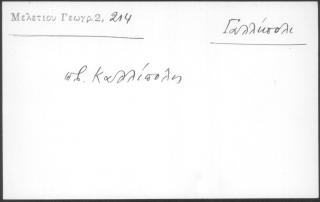 Μελετίου Γεωγρ. 2, 214
Γαλλίπολι
πβ. Καλλίπολις